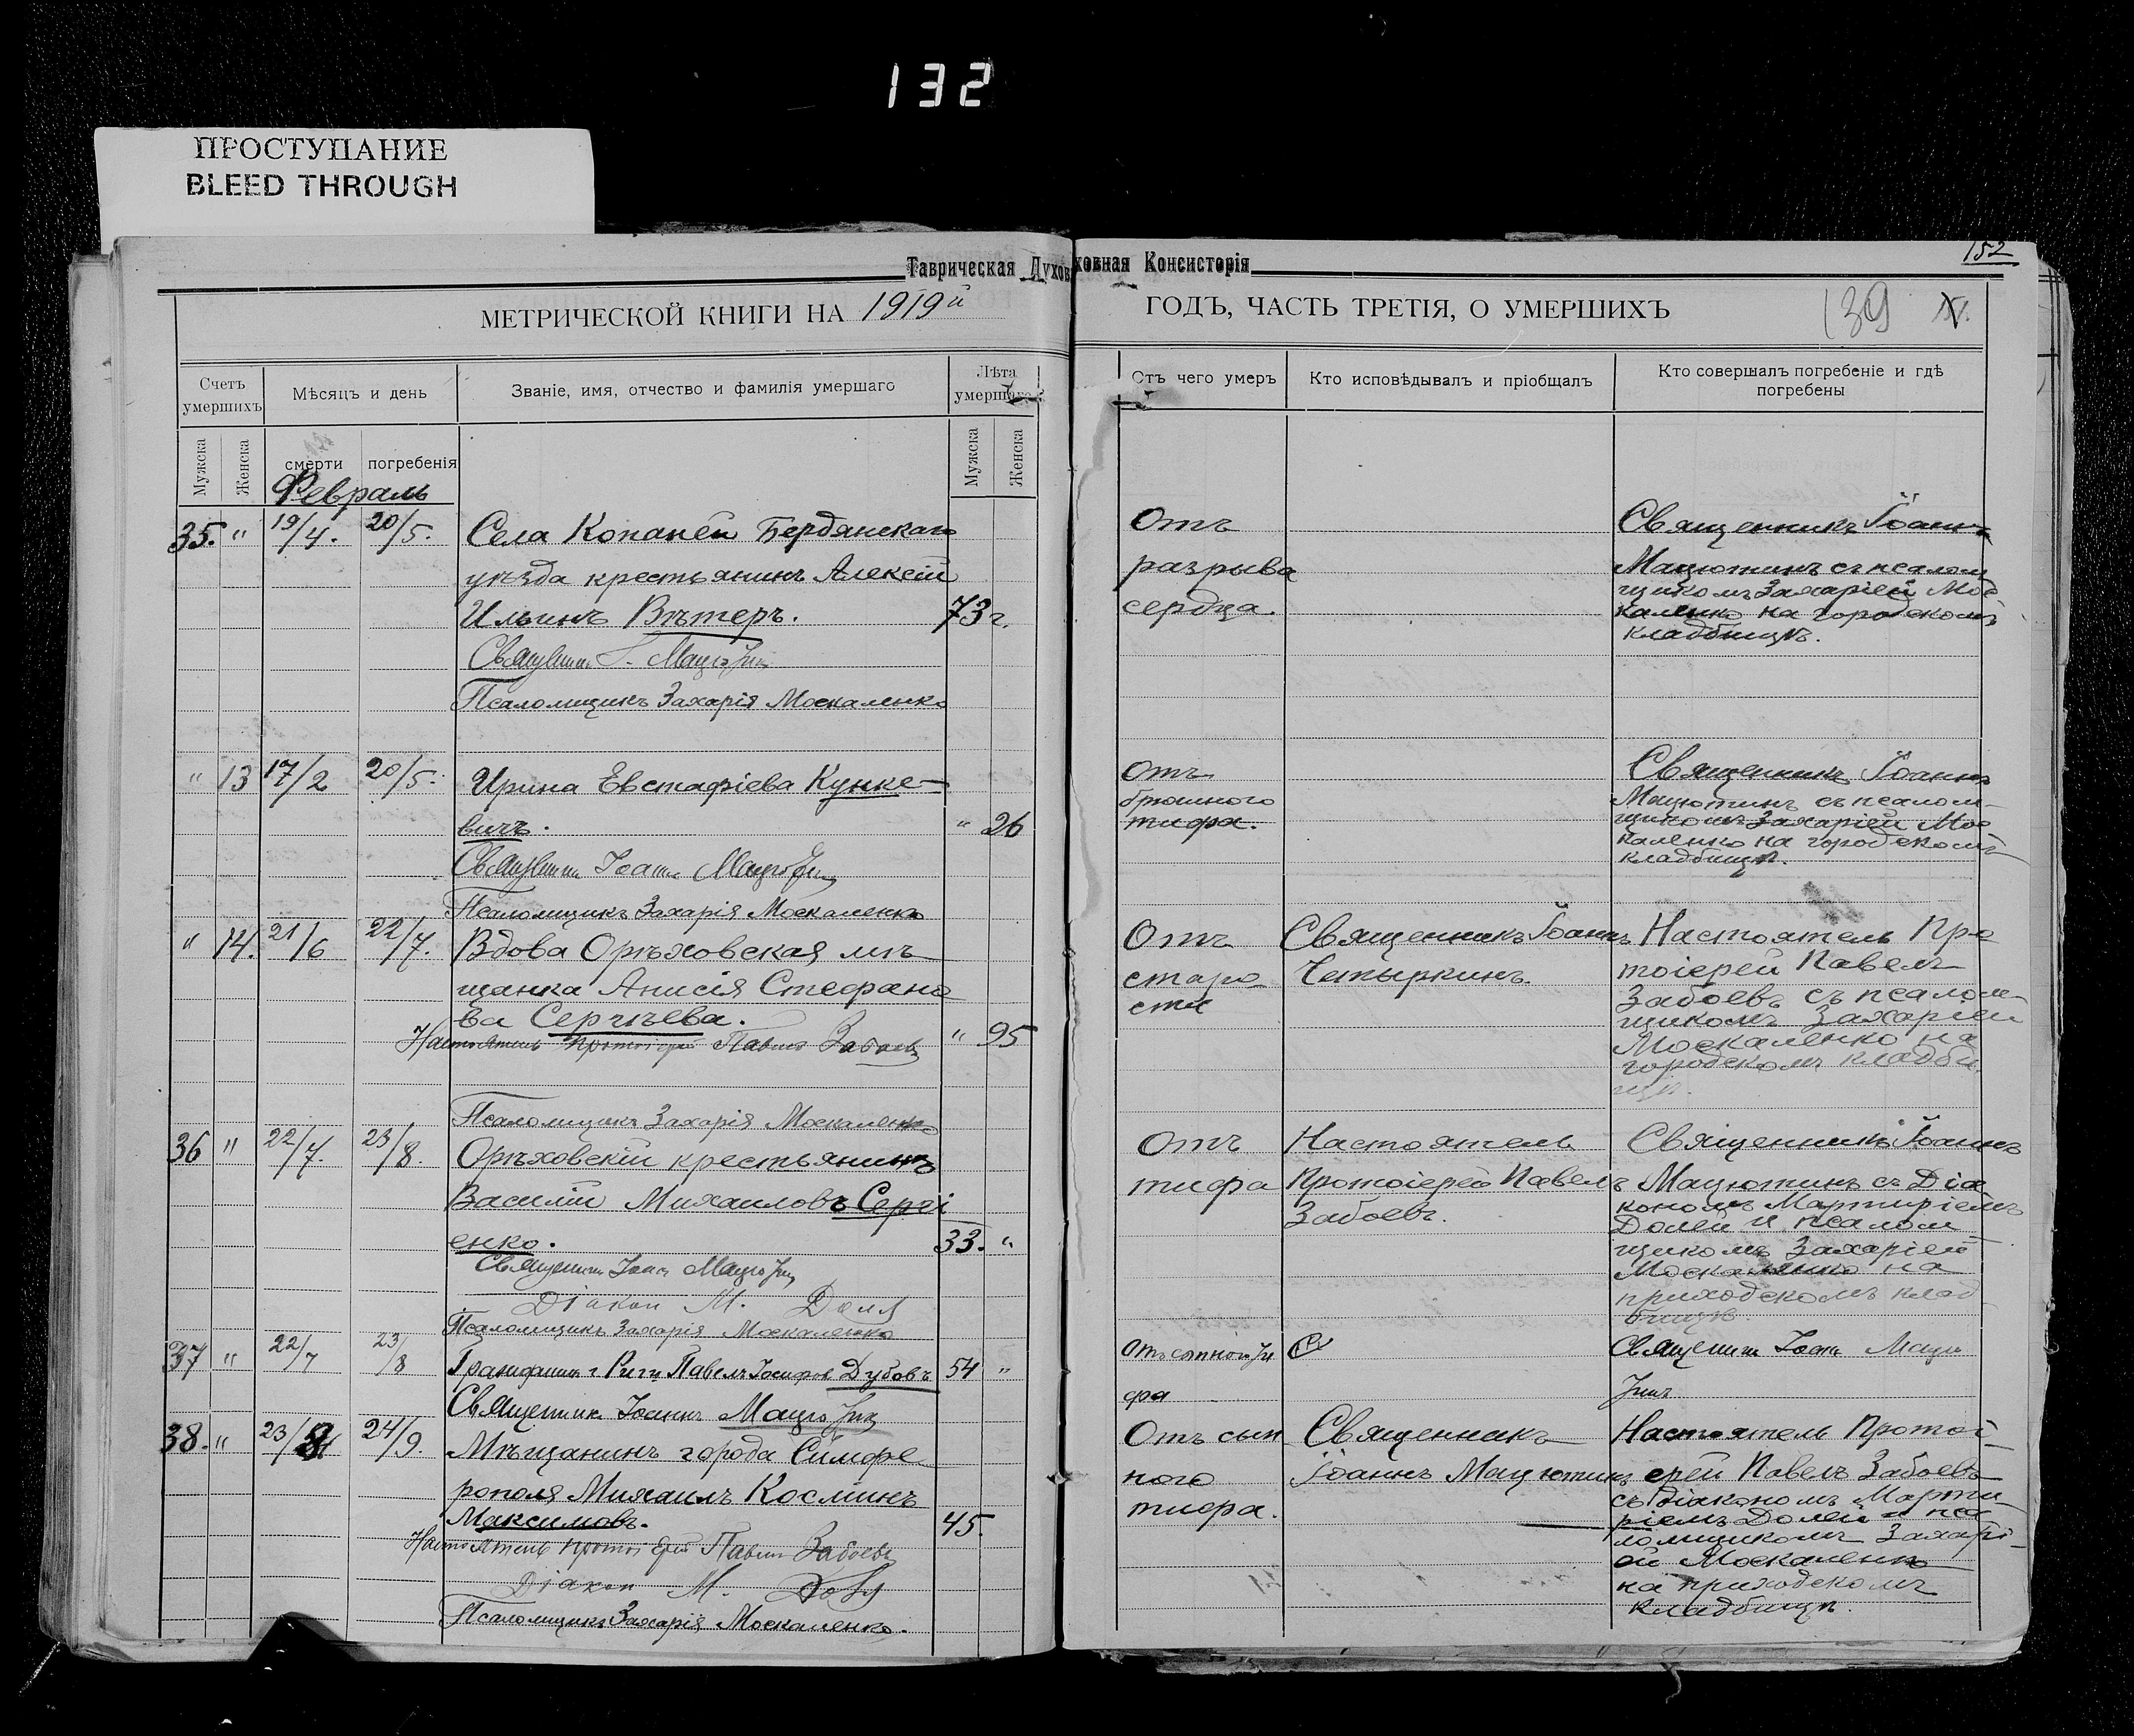 132
ПРОСТУПАНИЕ
BLEED THROUGH
Таврическая Духов ховная Консисторія
152
МЕТРИЧЕСКОЙ КНИГИ НА 1919й
ГОДЪ, ЧАСТЬ ТРЕТІЯ, О УМЕРШИХЪ
139
Счетъ умершихъ
Мѣсяцъ и день
Званіе, имя, отчество и фамилія умершаго
Лѣта умершаго
Отъ чего умеръ
Кто исповѣдывалъ и пріобщалъ
Кто совершалъ погребеніе и гдѣ погребены
Мужска
Женска
смерти
погребенія
Мужска
Женска
Февраль
35. " 19/4. 20/5. Села Копаней Бердянскаго
уѣзда крестьянинъ Алексій
Ильинъ Вѣтеръ. 73 г.
Священникъ І. Мацютин
Псаломщикъ Захарія Москаленко
Отъ
разрыва
сердца.
Священникъ Іоаннъ
Мацютинъ съ псалом
щикомъ Захаріей Мос
каленко на городскомъ
кладбищѣ.
" 13 17/2 20/5. Ирина Евстафіева Кунке-
вичъ. " 26
Священник Іоанн Мацютин
Псаломщикъ Захарія Москаленко
Отъ
брюшного
тифа.
Священникъ Іоаннъ
Мацютинъ съ псалом-
щикомъ Захаріей Мос
каленко на городскомъ
кладбищѣ.
" 14. 21/6 22/7. Вдова Орѣховская мѣ
щанка Анисія Стефано
ва Сергѣева.
Настоятель протоіерей Павелъ Забоевъ " 95
Псаломщикъ Захарія Москаленко
Отъ
старо
сти
Священникъ Іоаннъ
Четыркинъ.
Настоятель Про
тоіерей Павелъ
Забоевъ съ псалом-
щикомъ Захаріей
Москаленко на
городскомъ кладби
щѣ.
36 " 22/7. 23/8. Орѣховскій крестьянинъ
Василій Михаиловъ Сергі
енко. 33. "
Священник Іоанн Мацютин
Діакон М. Доля
Псаломщикъ Захарія Москаленко
Отъ
тифа
Настоятель
Протоіерей Павелъ
Забоевъ.
Священникъ Іоаннъ
Мацютинъ съ Діа
кономъ Мартиріемъ
Долей и псалом
щикомъ Захаріей
Москаленко на
приходскомъ клад
бищѣ.
37 " 22/7 23/8 Гражданин г. Риги Павелъ Іосифов Дубовъ 54 "
Священник Іоаннъ Мацютин
Отъ сыпного ти
фа
Священник Іоанн Мацю
тинъ
38. " 23/8 24/9. Мѣщанинъ города Симфе
рополя Михаилъ Косминъ
Максимовъ. 45.
Настоятель протоіерей Павелъ Забоевъ
Діакон М. Доля
Псаломщикъ Захарія Москаленко.
Отъ сып
ного
тифа.
Священникъ
Іоаннъ Мацютинъ
Настоятель Протоі-
ерей Павелъ Забоевъ
съ діакономъ Марти-
ріемъ Долей и пса
ломщикомъ Захарі-
ей Москаленко
на приходскомъ
кладбищѣ.